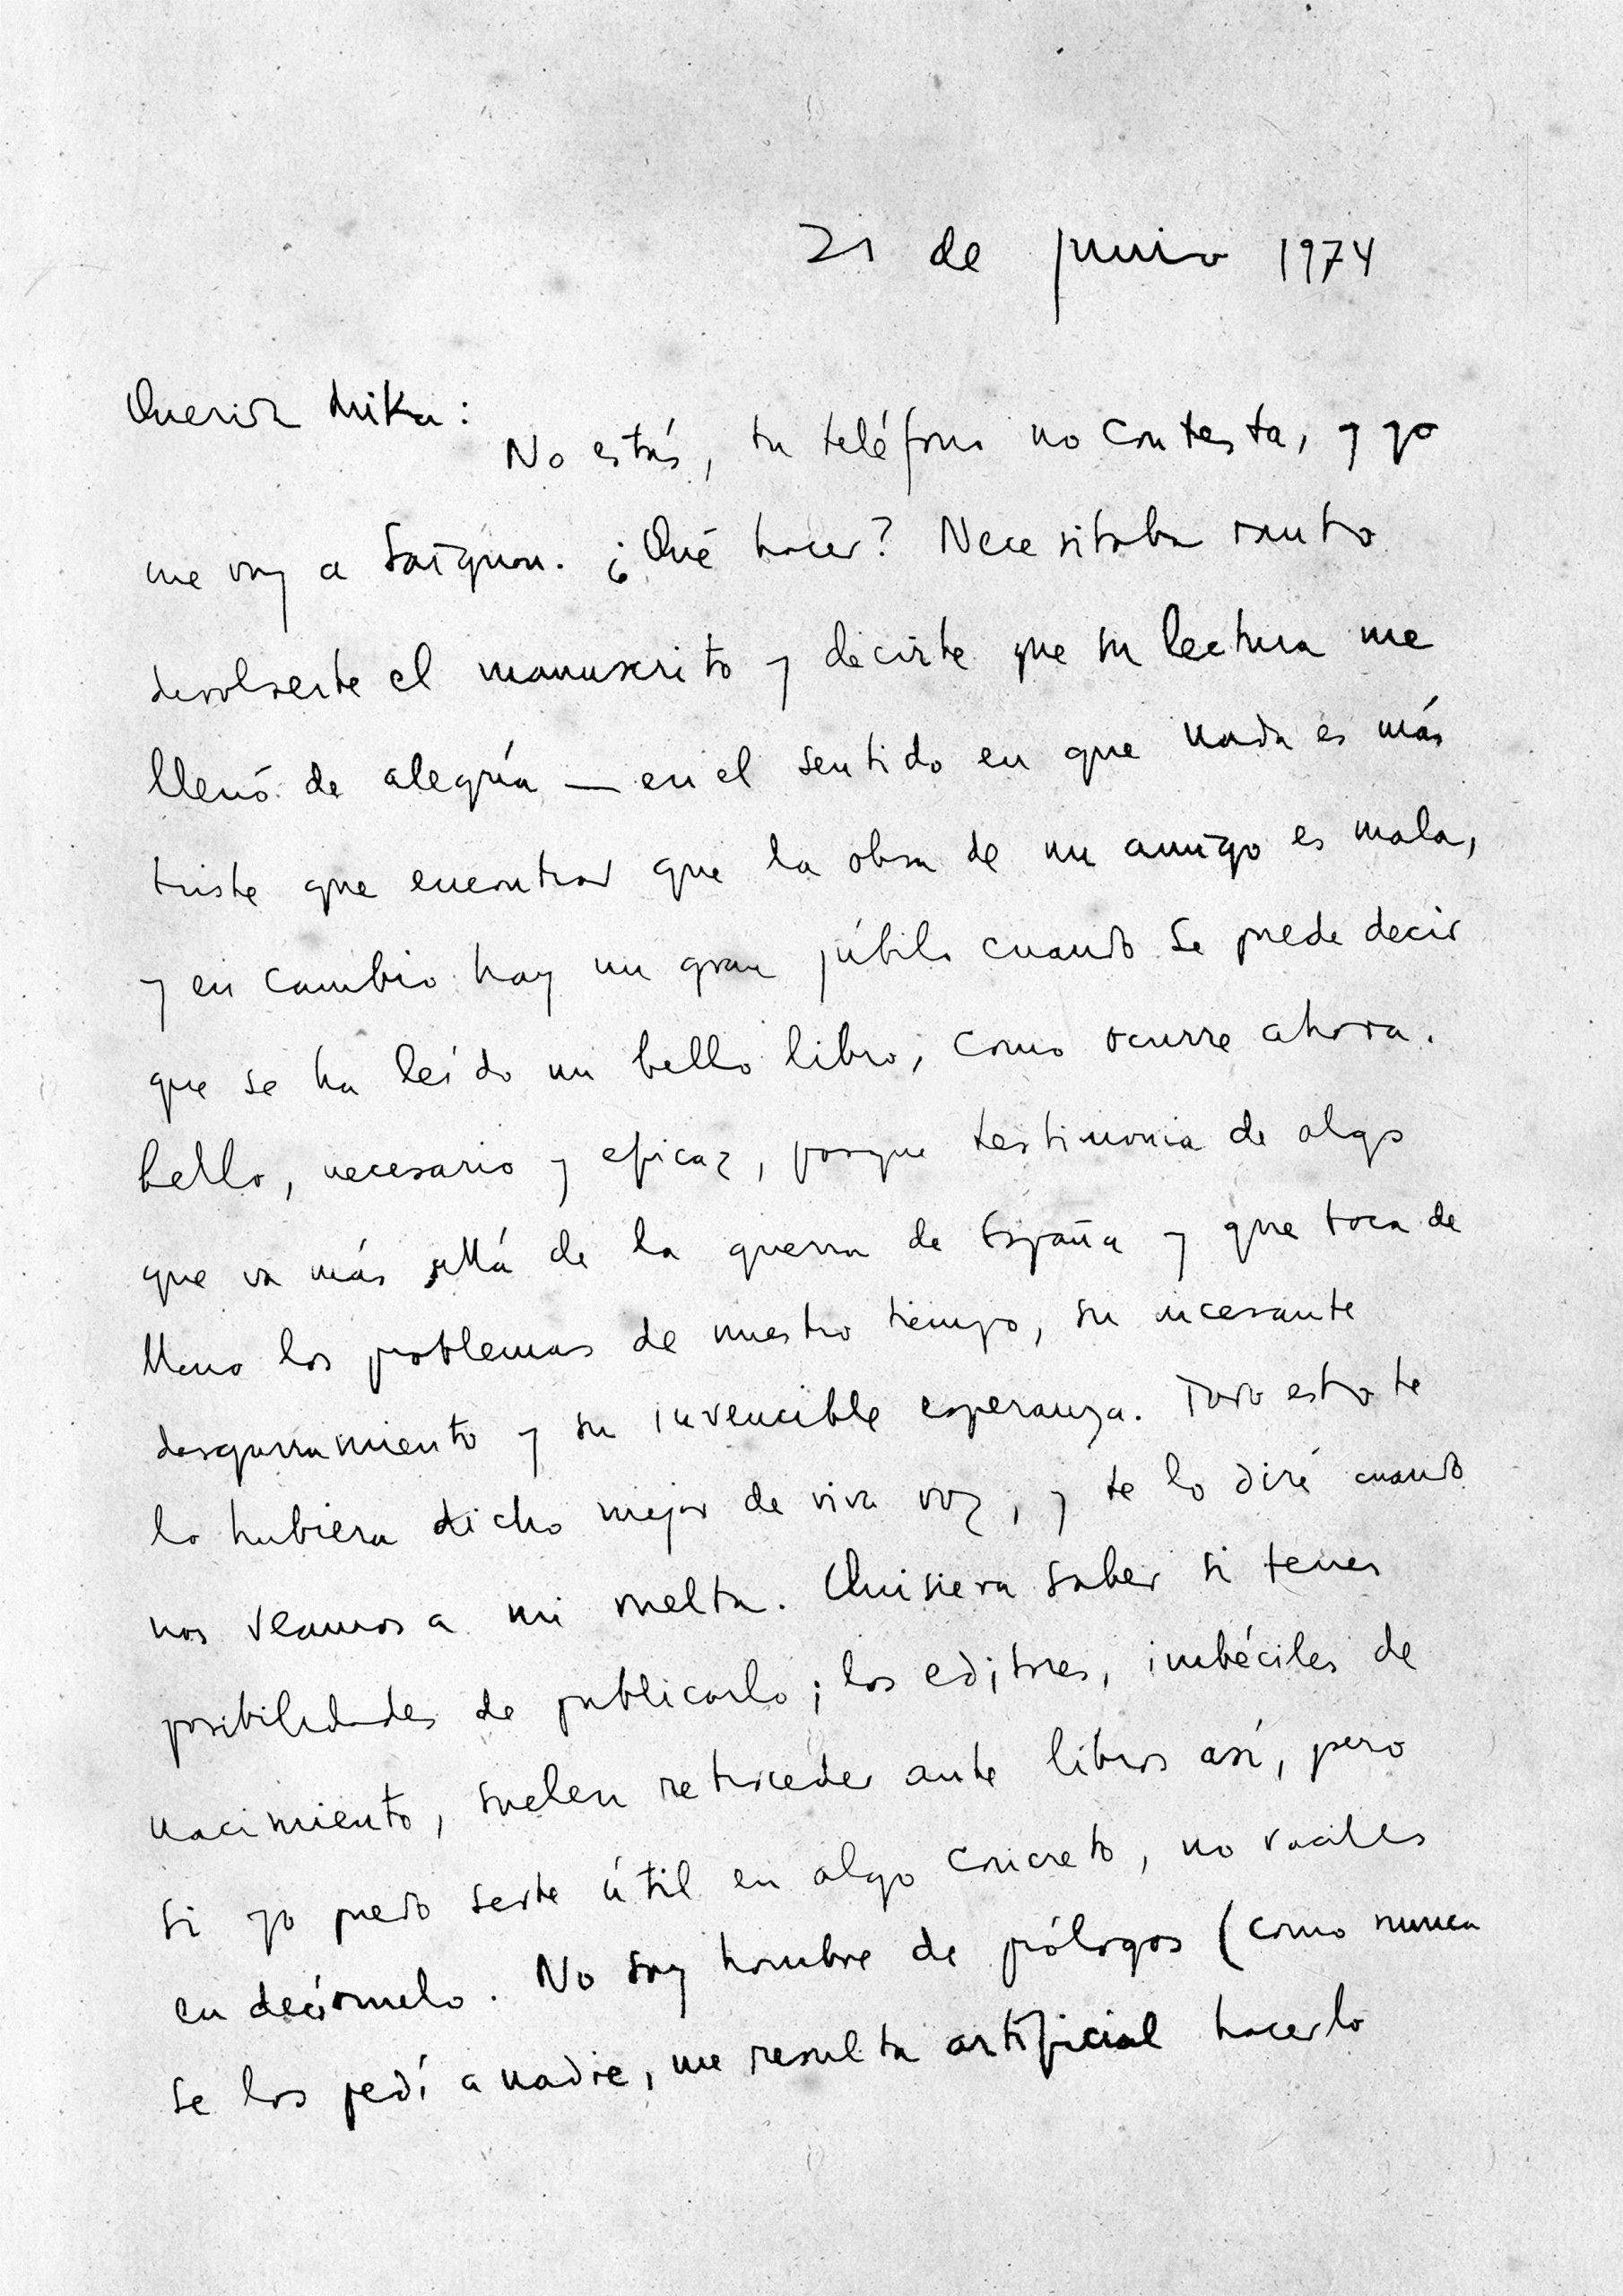 21 de junio 1974
Querida Mika:
No estás, tu teléfono no contesta, y yo
me voy a Saignon. ¿Qué hacer? Necesitaba tanto
devolverte el manuscrito y decirte que su lectura me
llenó de alegría — en el sentido en que nada es más
triste que encontrar que la obra de un amigo es mala,
y en cambio hay un gran júbilo cuando se puede decir
que se ha leído un bello libro, como ocurre ahora.
bello, necesario y eficaz, porque testimonia de algo
que va más allá de la guerra de España y que toca de
lleno los problemas de nuestro tiempo, su incesante
desgarramiento y su invencible esperanza. Todo esto te
lo hubiera dicho mejor de viva voz, y te lo diré cuando
nos veamos a mi vuelta. Quisiera saber si tenes
posibilidades de publicarlo; los editores, imbéciles de
nacimiento, suelen retroceder ante libros así, pero
si yo puedo serte útil en algo concreto, no vaciles
en decírmelo. No soy hombre de prólogos (como nunca
se los pedí a nadie, me resulta artificial hacerlo